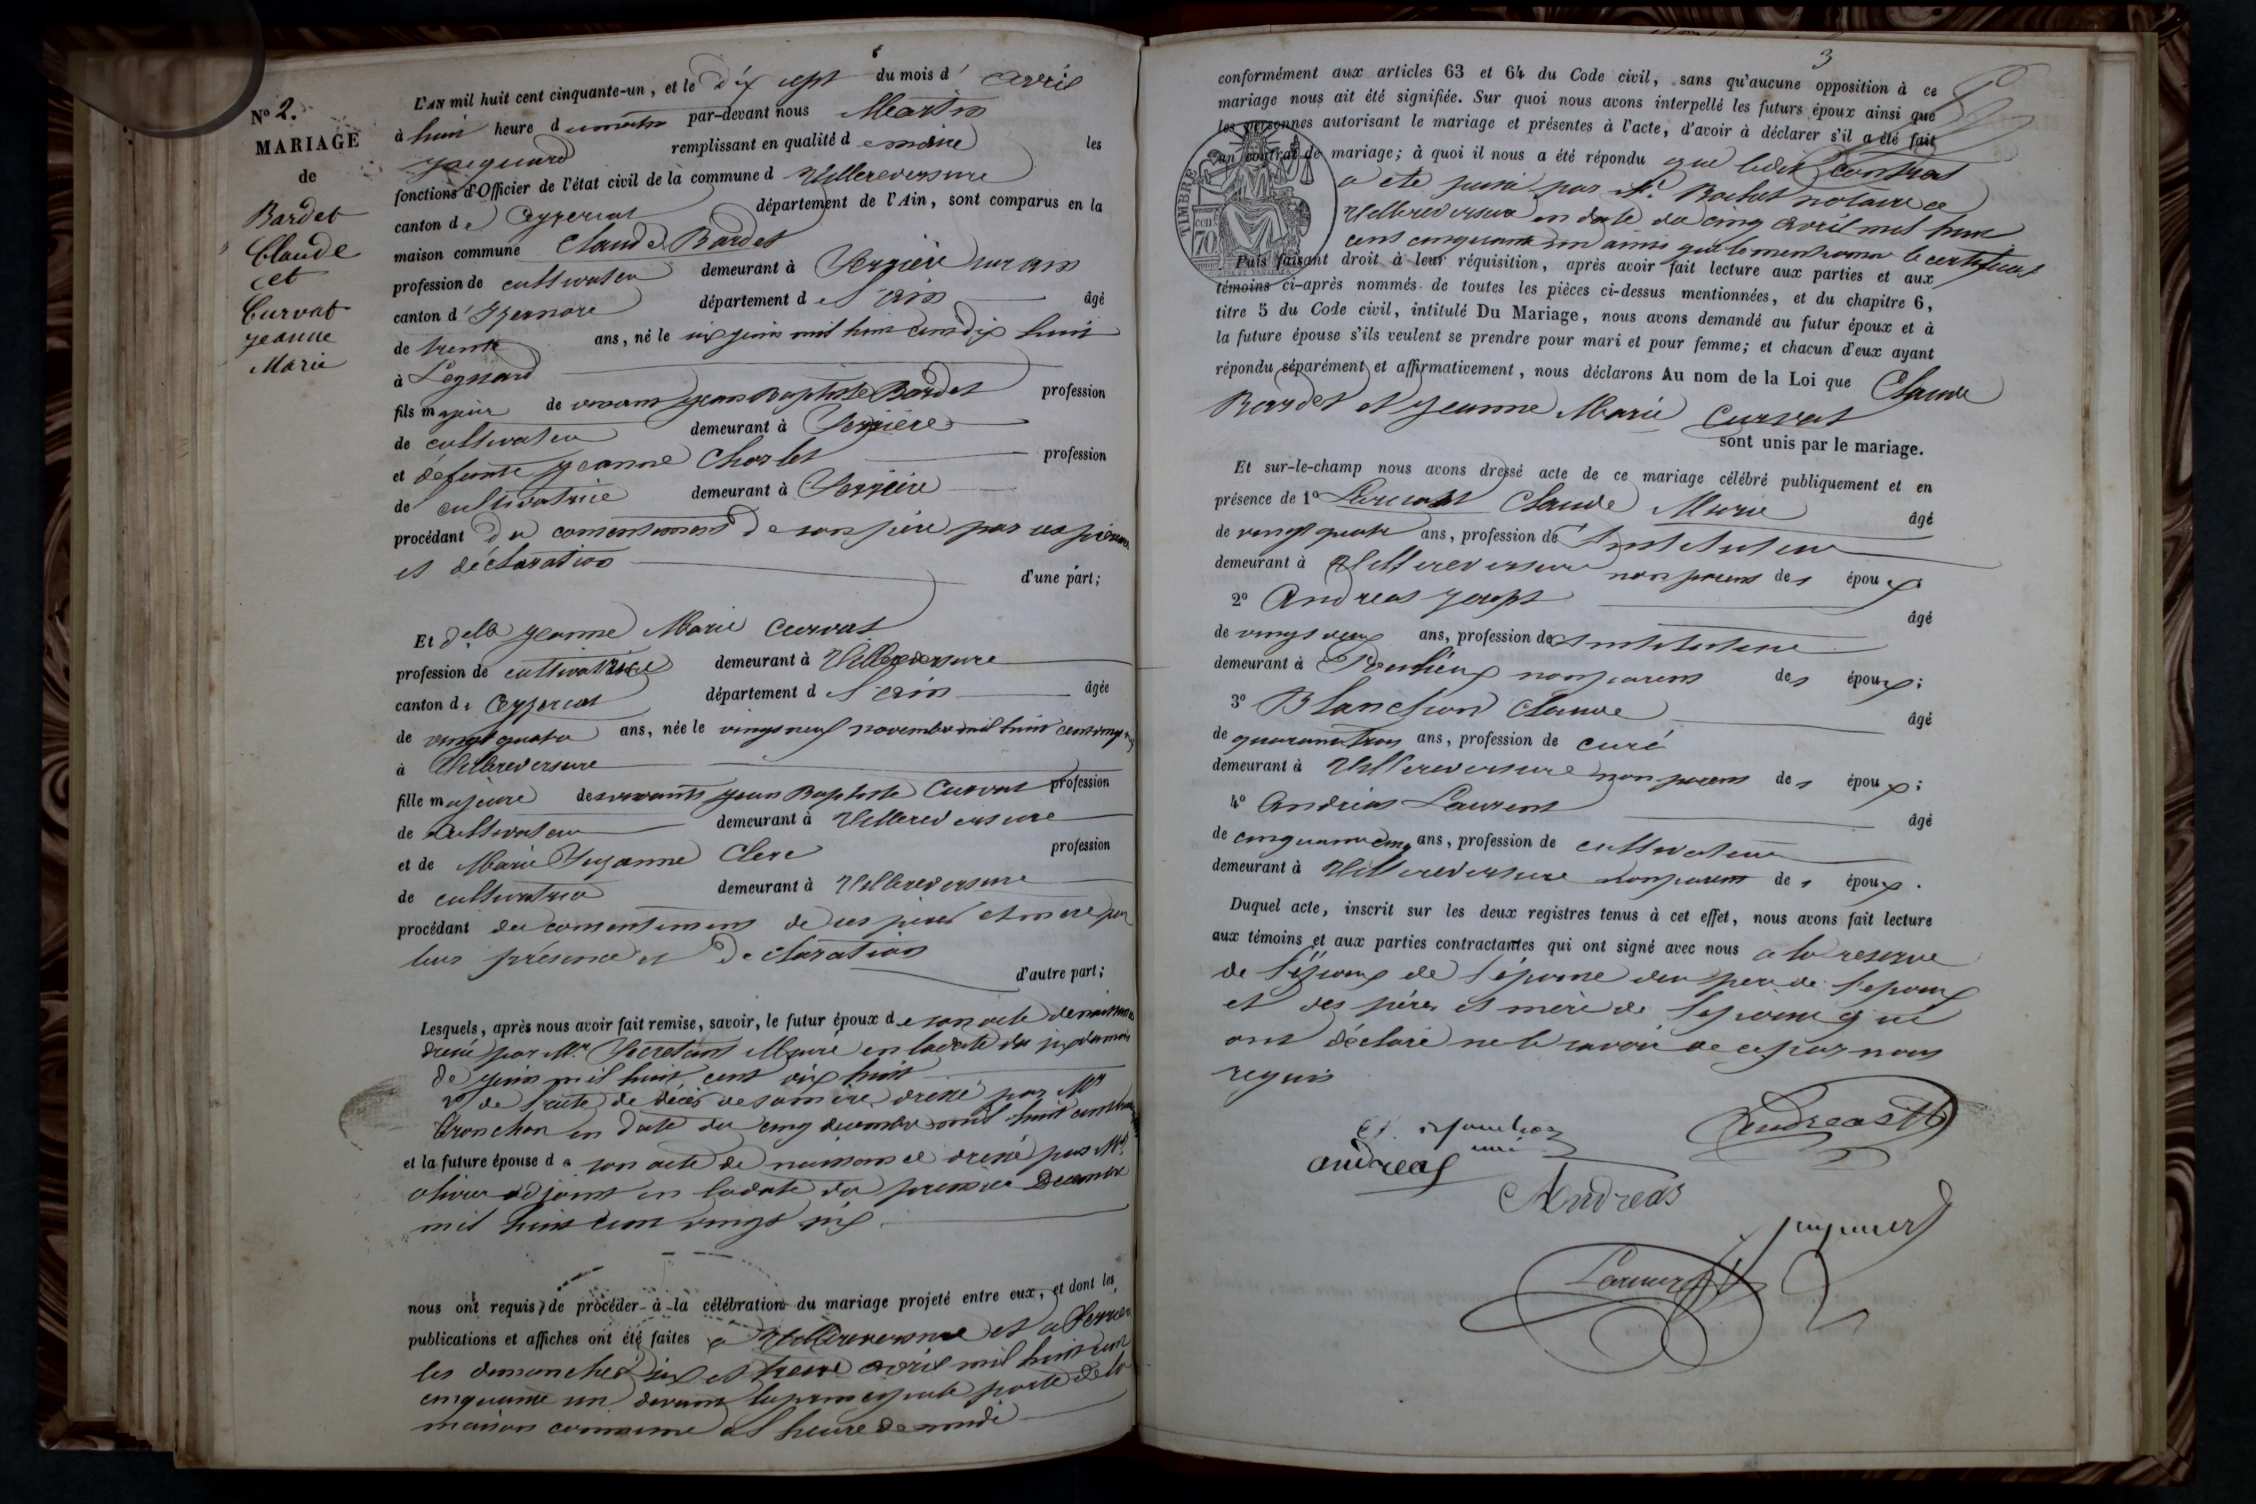 N° 2.
MARIAGE
de
Bardet
Claude
et
Curvat
jeanne
Marie
L'AN mil huit cent cinquante-un, et le dix sept du mois d' avril
à huit heure du matin par-devant nous Martin
jacquard remplissant en qualité de maire les
fonctions d'Officier de l'état civil de la commune d Villereversure
canton de Ceyzeriat département de l'Ain, sont comparus en la
maison commune Claude Bardet
profession de cultivateur demeurant à Serrière sur ain
canton d' Izernore département de l'ain âgé
de trente ans, né le six juin mil huit cent dix huit
à Legnard
fils majeur de vivant jean Baptiste Bardet profession
de cultivateur demeurant à Serrière
et défunte jeanne Charlet profession
de cultivatrice demeurant à Serrière
procédant du consentement de son père par sa présence
et déclaration d'une part;
Et delle jeanne Marie Curvat
profession de cultivatrice demeurant à Villereversure
canton de Ceyzeriat département de l'ain âgée
de vingt quatre ans, née le vingt neuf novembre mil huit cent vingt six
à Villereversure
fille majeure des vivants jean Baptiste Curvat profession
de cultivateur demeurant à Villereversure
et de Marie Suzanne Clerc profession
de cultivatrice demeurant à Villereversure
procédant du consentement de ses père et mère par
leur présence et déclaration d'autre part;
Lesquels, après nous avoir fait remise, savoir, le futur époux de son acte de naissance
dressé par Mr. Secretant Maire en la date du six du mois
de juin mil huit cent dix huit
2° de l'acte de décès de sa mère dressé par Mr
Tronchon en date du cinq decembre mil huit cent
et la future épouse de son acte de naissance dressé par Mr
olivier adjoint en la date du premier Decembre
mil huit cent vingt six
nous ont requis de procéder à la célébration du mariage projeté entre eux, et dont les
publications et affiches ont été faites a Villereversure et a Serrière
les dimanches six et treize avril mil huit cent
cinquante un devant la principale porte de la
maison commune a l'heure de midi
3
conformément aux articles 63 et 64 du Code civil, sans qu'aucune opposition à ce
mariage nous ait été signifiée. Sur quoi nous avons interpellé les futurs époux ainsi que
les personnes autorisant le mariage et présentes à l'acte, d'avoir à déclarer s'il a été fait
un contrat de mariage; à quoi il nous a été répondu que ledit contrat
a été passé par Me. Bochet notaire a
Villereversure en date du cinq avril mil huit
cent cinquante un ainsi que le mentionne le certificat
TIMBRE
70 cent
Puis faisant droit à leur réquisition, après avoir fait lecture aux parties et aux
témoins ci-après nommés de toutes les pièces ci-dessus mentionnées, et du chapitre 6,
titre 5 du Code civil, intitulé Du Mariage, nous avons demandé au futur époux et à
la future épouse s'ils veulent se prendre pour mari et pour femme; et chacun d'eux ayant
répondu séparément et affirmativement, nous déclarons Au nom de la Loi que Claude
Bardet et jeanne Marie Curvat
sont unis par le mariage.
Et sur-le-champ nous avons dressé acte de ce mariage célébré publiquement et en
présence de 1° Claude Marie âgé
de vingt quatre ans, profession de Instituteur
demeurant à Villereversure non parent des époux
2° Andreas joseph âgé
de vingt deux ans, profession de Instituteur
demeurant à non parent des époux;
3° Blanchon Claude âgé
de quarante trois ans, profession de curé
demeurant à Villereversure non parent des époux;
4° Andréas Laurent âgé
de cinquante cinq ans, profession de cultivateur
demeurant à Villereversure non parent des époux.
Duquel acte, inscrit sur les deux registres tenus à cet effet, nous avons fait lecture
aux témoins et aux parties contractantes qui ont signé avec nous a la reserve
de l'époux de l'épouse du père de l'époux
et des père et mère de l'épouse qui
ont déclaré ne le savoir de ce par nous
requis
andreas
Andreas
Andreas
jacquard